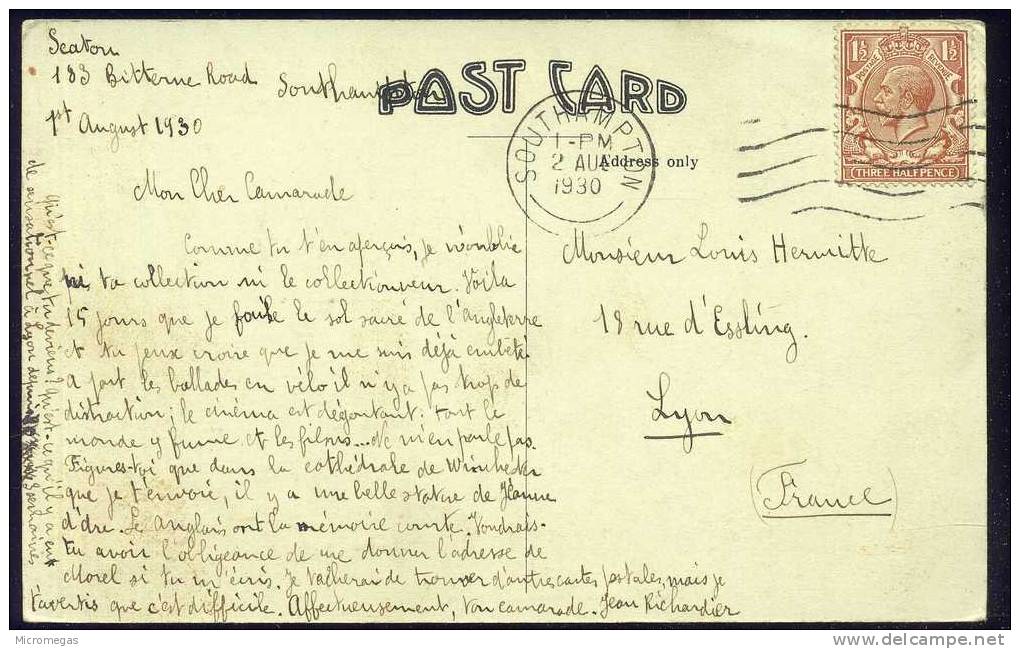 Seaton
183 Bitterne Road Southampton
1st August 1930
POST CARD
Address only
SOUTHAMPTON
1-PM
2 AU
1930
1½ 1½
POSTAGE REVENUE
THREE HALFPENCE
Mon Cher Camarade
Comme tu t'en aperçois, je n'oublie
ni ta collection ni le collectionneur. Voila
15 jours que je foule le sol sacré de l'angleterre
et tu peux croire que je me suis déjà embêté.
A part les ballades en vélo il n'y a pas trop de
distraction; le cinéma est dégoutant: tout le
monde y fume et les films... Ne m'en parle pas.
Figures-toi que dans la cathédrale de Winchester
que je t'envoie, il y a une belle statue de Jeanne
d'Arc. Les anglais ont la mémoire courte. Voudrais-
tu avoir l'obligeance de me donner l'adresse de
Morel si tu m'écris. Je tâcherai de trouver d'autres cartes postales, mais je
t'avertis que c'est difficile. Affectueusement, ton camarade. Jean Richardier
Qu'est-ce que tu deviens? Qu'est-ce qu'il y a eu
de sensationnel à Lyon depuis 3 semaines
Monsieur Louis Hermitte
18 rue d'Essling.
Lyon
(France)
Micromegas
www.delcampe.net